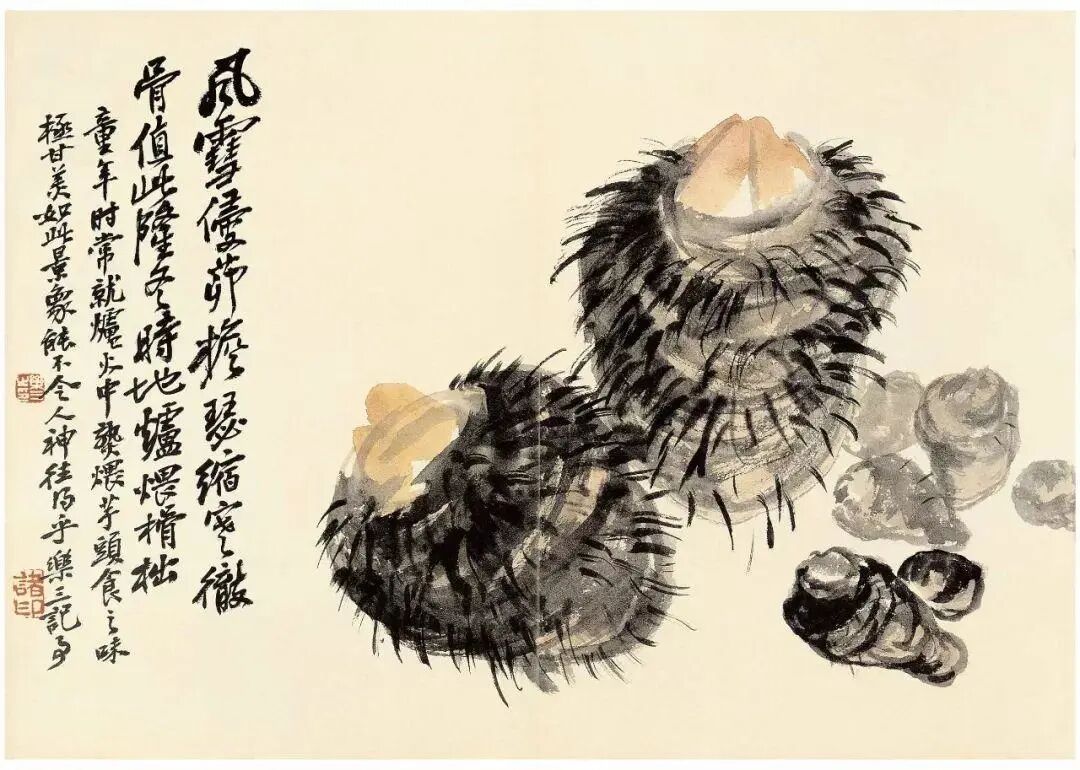 風雪侵茆檐瑟縮寒徹
骨值此隆冬時地爐煨榾柮
童年时常就爐火中熟煨芋頭食之味
極甘美如此景象能不令人神往得乎樂三記
諸印